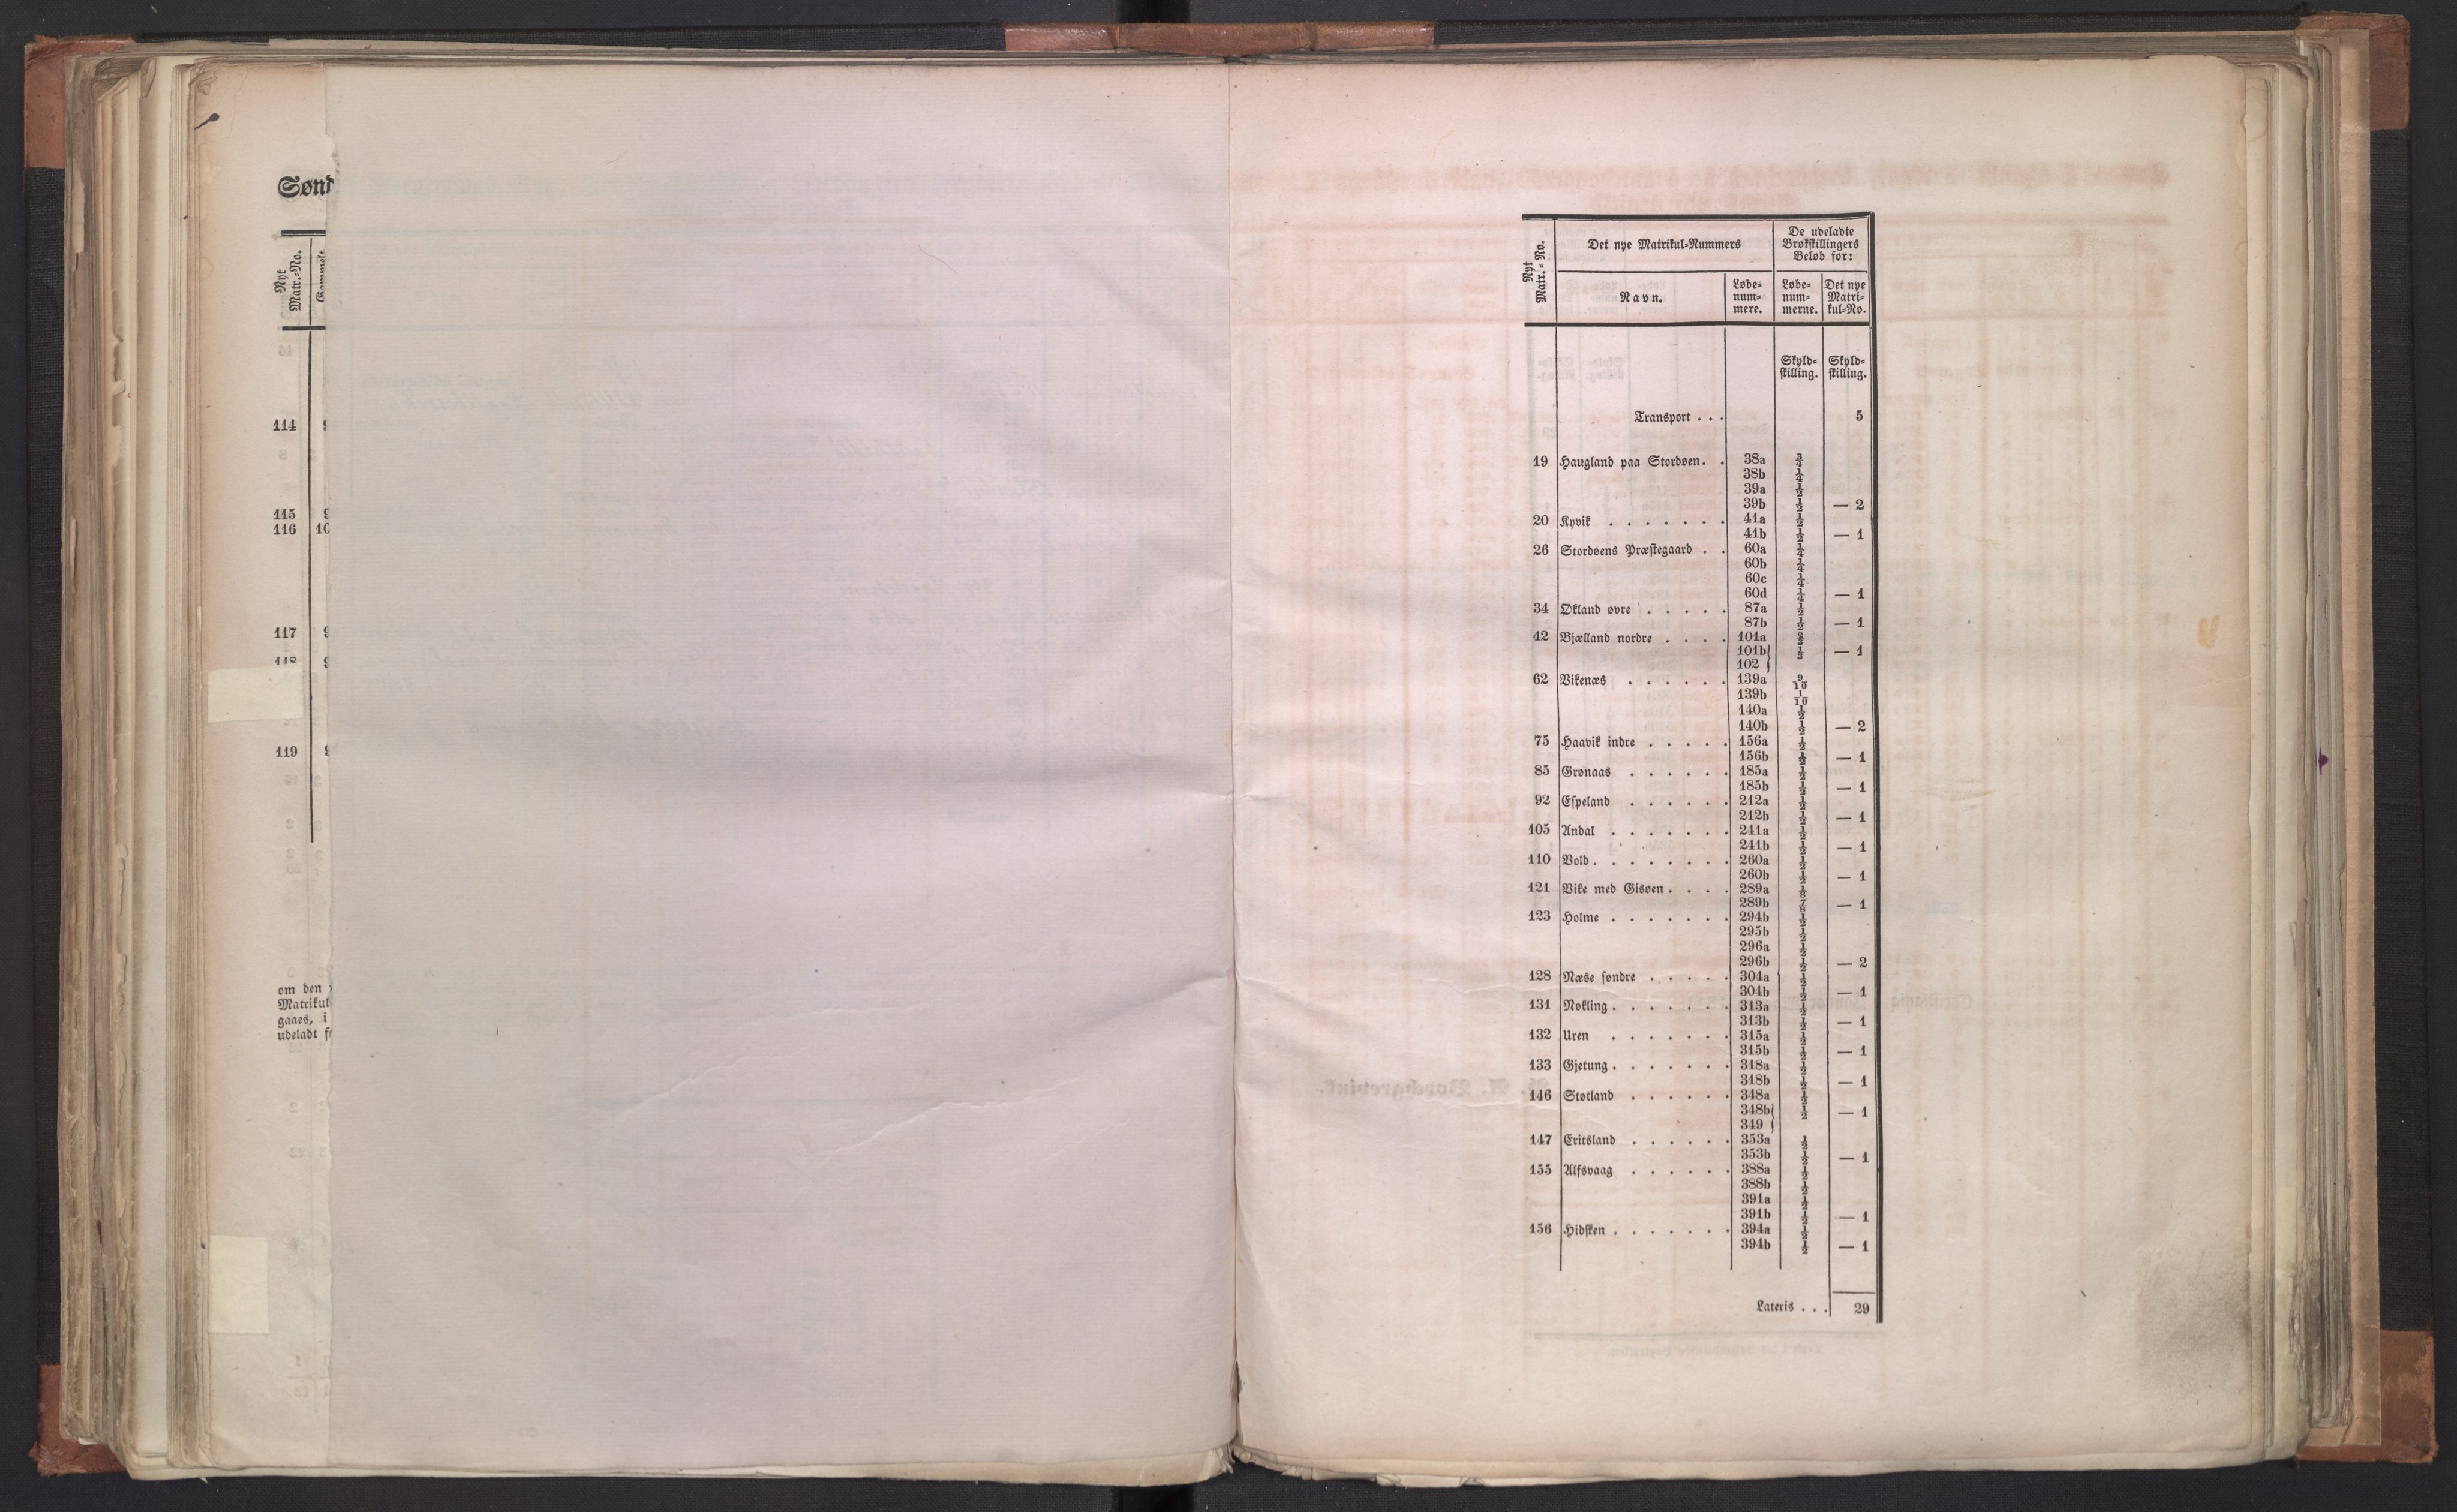 Sønd
Nyt
Matr.-No.
114
115
116 10
117
118
119
om den
Matrikul
gaaes, i
udeladt
Nyt
Matr.-No.
Det nye Matrikul-Nummers
De udeladte
Brøkskillingers
Beløb for:
Navn.
Løbe-
num-
mere.
Løbe-
num-
merne.
Det nye
Matri-
kul-No.
Skyld-
skilling.
Skyld-
skilling.
Transport . . . 5
19 Haugland paa Stordøen. . 38a 3/4
38b 1/4
39a 1/2
39b 1/2 — 2
20 Kyvik . . . . . . . 41a 1/2
41b 1/2 — 1
26 Stordøens Præstegaard . . 60a 1/4
60b 1/4
60c 1/4
60d 1/4 — 1
34 Økland øvre . . . . . 87a 1/2
87b 1/2 — 1
42 Bjælland nordre . . . . 101a 2/3
101b} 1/3 — 1
102 }
62 Vikenæs . . . . . . 139a 9/10
139b 1/10
140a 1/2
140b 1/2 — 2
75 Haavik indre . . . . . 156a 1/2
156b 1/2 — 1
85 Grønaas . . . . . . 185a 1/2
185b 1/2 — 1
92 Espeland . . . . . . 212a 1/2
212b 1/2 — 1
105 Andal . . . . . . . 241a 1/2
241b 1/2 — 1
110 Vold. . . . . . . . 260a 1/2
260b 1/2 — 1
121 Vike med Gisøen. . . . 289a 1/8
289b 7/8 — 1
123 Holme . . . . . . . 294b 1/2
295b 1/2
296a 1/2
296b 1/2 — 2
128 Næse søndre . . . . . 304a 1/2
304b 1/2 — 1
131 Nøkling. . . . . . . 313a 1/2
313b 1/2 — 1
132 Uren . . . . . . . 315a 1/2
315b 1/2 — 1
133 Gjetung. . . . . . . 318a 1/2
318b 1/2 — 1
146 Støtland . . . . . . 348a 1/2
348b} 1/2 — 1
349 }
147 Eritsland . . . . . . 353a 1/2
353b 1/2 — 1
155 Alfsvaag . . . . . . 388a 1/2
388b 1/2
391a 1/2
391b 1/2 — 1
156 Hidsken . . . . . . . 394a 1/2
394b 1/2 — 1
Lateris . . . 29